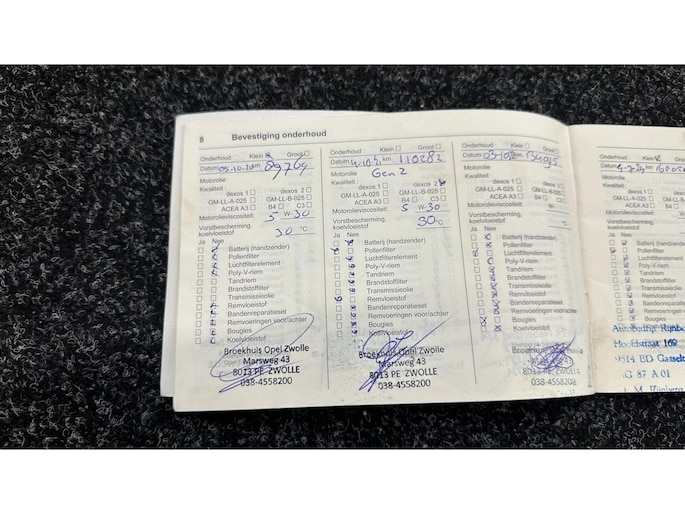 8 Bevestiging onderhoud
Onderhoud : Klein Groot
Datum 05-10-20 km 89769
Motorolie
Kwaliteit :
dexos 1 dexos 2
GM-LL-A-025 GM-LL-B-025
ACEA A3 B4 C3
Motorolieviscositeit: 5 W-30
Vorstbescherming,
koelvloeistof 30 °C
Ja Nee
Batterij (handzender)
Pollenfilter
Luchtfilterelement
Poly-V-riem
Tandriem
Brandstoffilter
Transmissieolie
Remvloeistof
Bandenreparatieset
Remvoeringen voor/achter
Bougies
Koelvloeistof
Broekhuis Opel Zwolle
Marsweg 43
8013 PE ZWOLLE
038-4558200
Onderhoud : Klein Groot
Datum 4-10-21 km 110282
Motorolie Gen 2
Kwaliteit :
dexos 1 dexos 2
GM-LL-A-025 GM-LL-B-025
ACEA A3 B4 C3
Motorolieviscositeit: 5 W-30
Vorstbescherming,
koelvloeistof 30 °C
Ja Nee
Batterij (handzender)
Pollenfilter
Luchtfilterelement
Poly-V-riem
Tandriem
Brandstoffilter
Transmissieolie
Remvloeistof
Bandenreparatieset
Remvoeringen voor/achter
Bougies
Koelvloeistof
Broekhuis Opel Zwolle
Marsweg 43
8013 PE ZWOLLE
038-4558200
Onderhoud : Klein Groot
Datum km
Motorolie
Kwaliteit :
dexos 1 dexos 2
GM-LL-A-025 GM-LL-B-025
ACEA A3 B4 C3
Motorolieviscositeit: 5 W-30
Vorstbescherming,
koelvloeistof
Ja Nee
Batterij (handzender)
Pollenfilter
Luchtfilterelement
Poly-V-riem
Tandriem
Brandstoffilter
Transmissieolie
Remvloeistof
Bandenreparatieset
Remvoeringen voor/achter
Bougies
Koelvloeistof
Broekhuis Zwolle
Marsweg 43
8013 PE ZWOLLE
038-4558200
Onderhoud : Klein
Datum km
Motorolie
Kwaliteit :
dexos 1
GM-LL-A-025
ACEA A3
Motorolieviscositeit
Vorstbescherming,
koelvloeistof
Ja Nee
Batterij
Pollenfilter
Luchtfilter
Poly-V-riem
Tandriem
Brandstof
Transmissie
Remvloeistof
Bandenrep
Remvoering
Bougies
Koelvloeistof
Hoofdstraat 169
9514 BD Gasselt
G 87 A 01